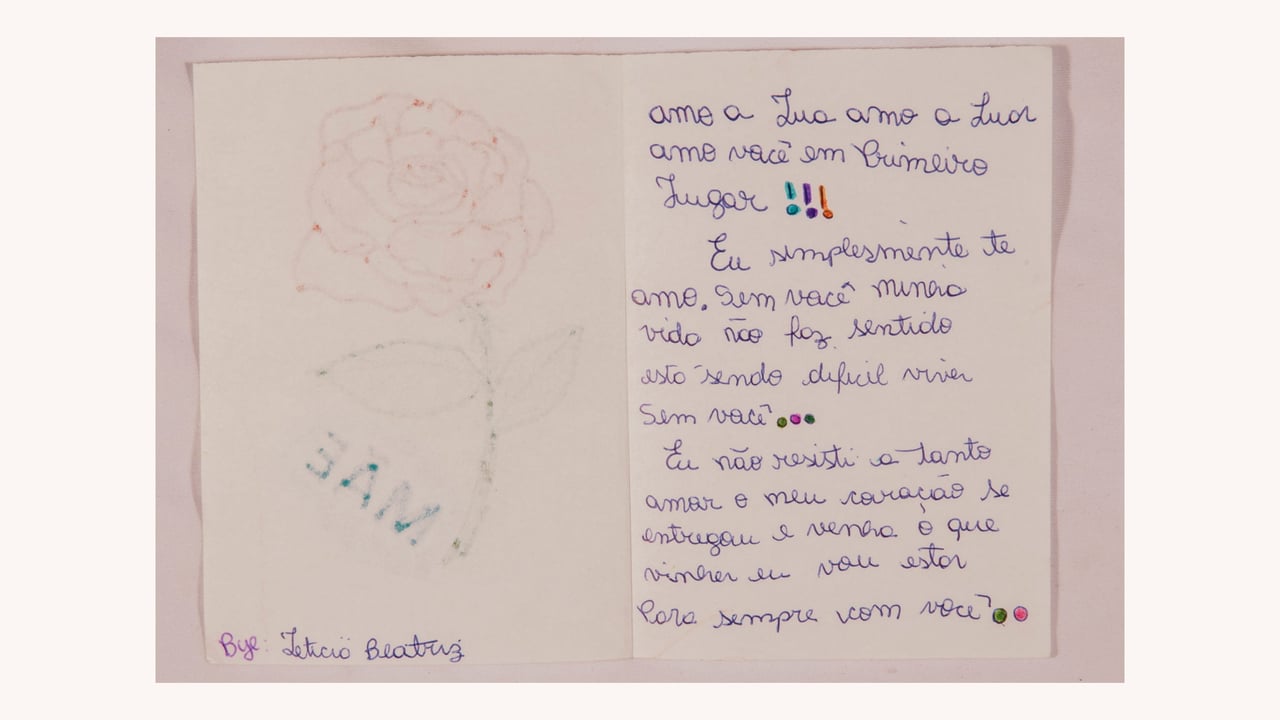 MÃE
Bye: Leticia Beatriz
amo a Lua amo a Luar
amo você em Primeiro
Lugar !!!
Eu simplesmente te
amo. Sem você minha
vida não faz sentido
esta sendo dificil viver
Sem você...
Eu não resisti a tanto
amar o meu coração se
entregou e venha o que
vinher eu vou estar
Para sempre com você..